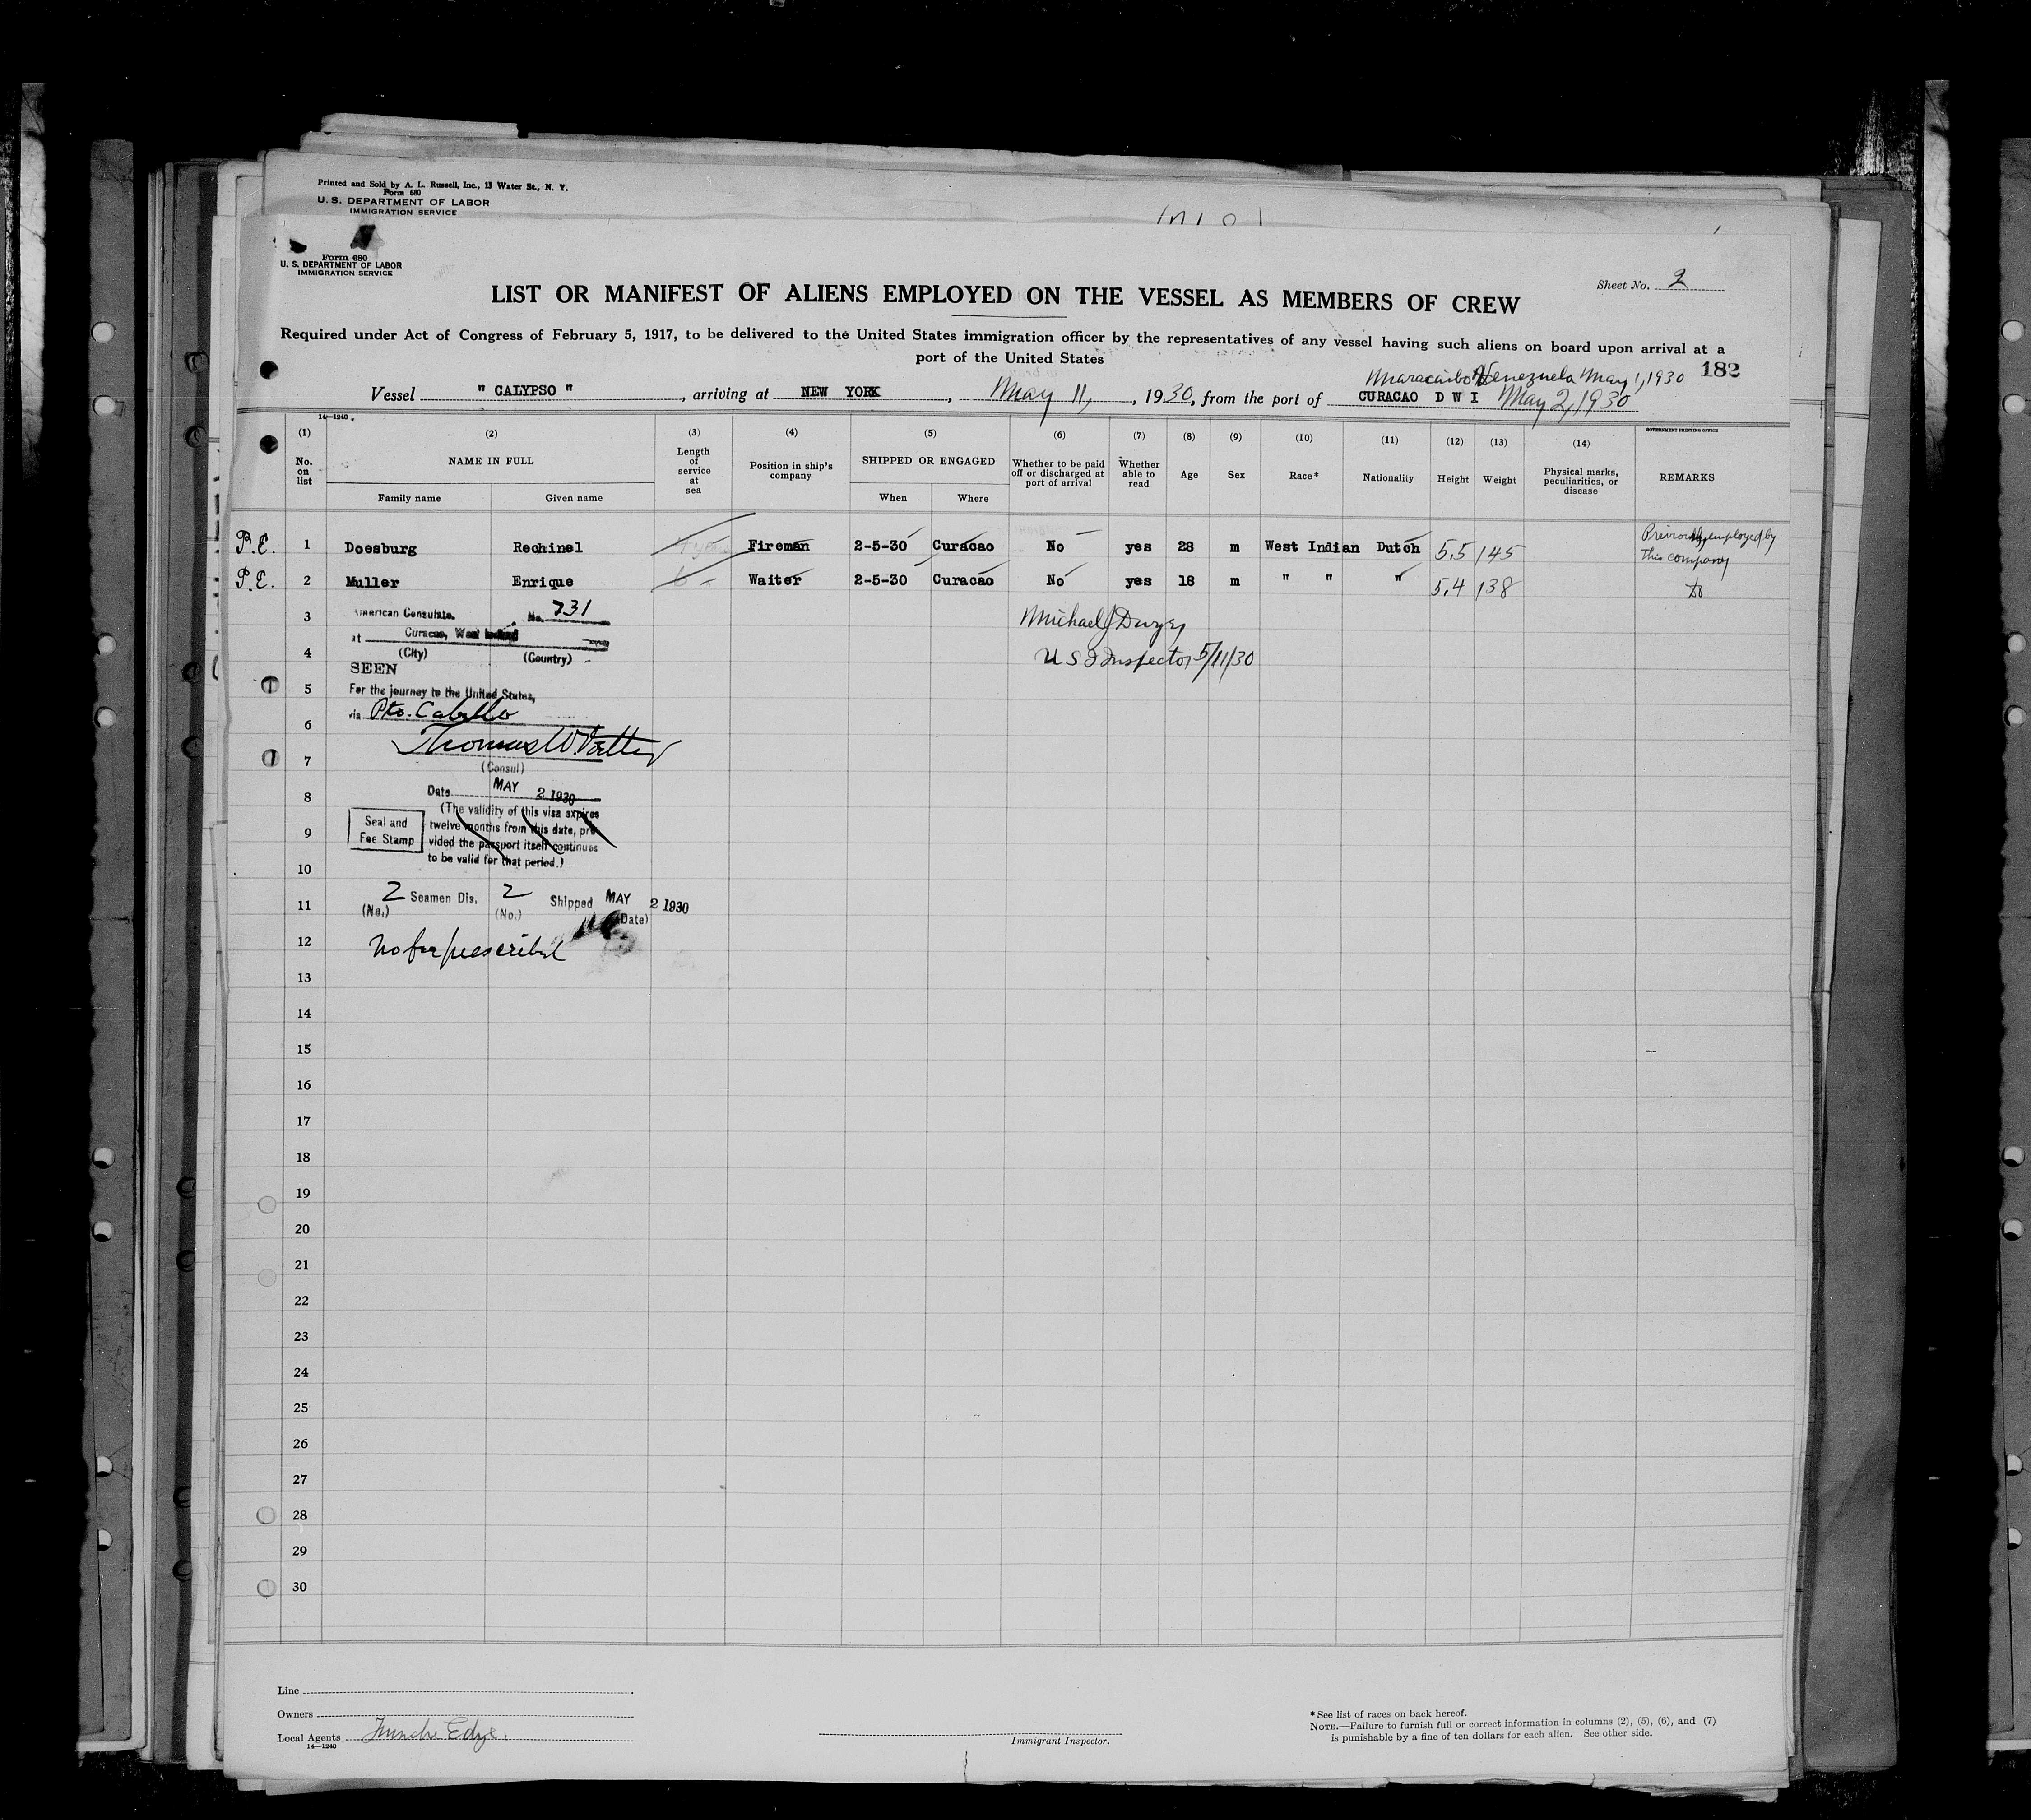 Printed and Sold by A. L. Russell, Inc., 13 Water St., N. Y.
Form 680
U. S. DEPARTMENT OF LABOR
IMMIGRATION SERVICE
Form 680
U. S. DEPARTMENT OF LABOR
IMMIGRATION SERVICE
Sheet No. 2
LIST OR MANIFEST OF ALIENS EMPLOYED ON THE VESSEL AS MEMBERS OF CREW
Required under Act of Congress of February 5, 1917, to be delivered to the United States immigration officer by the representatives of any vessel having such aliens on board upon arrival at a
port of the United States
182
Maracaibo Venezuela May 1, 1930
Vessel " CALYPSO ", arriving at NEW YORK, May 11, 1930, from the port of CURACAO D W I May 2, 1930
14—1240
GOVERNMENT PRINTING OFFICE
(1) (2) (3) (4) (5) (6) (7) (8) (9) (10) (11) (12) (13) (14)
No. on list
NAME IN FULL
Family name
Given name
Length of service at sea
Position in ship's company
SHIPPED OR ENGAGED
When
Where
Whether to be paid off or discharged at port of arrival
Whether able to read
Age
Sex
Race*
Nationality
Height
Weight
Physical marks, peculiarities, or disease
REMARKS
P.E. 1 Doesburg Rechinel 4 years Fireman 2-5-30 Curacao No yes 28 m West Indian Dutch 5.5 145 Previously employed by this company
P.E. 2 Muller Enrique 6 " Waiter 2-5-30 Curacao No yes 18 m " " " 5.4 138 Do
3
American Consulate. No. 731
Michael J Dwyer
at Curacao, West
4
(City) (Country)
U S I Inspector 5/11/30
SEEN
5
For the journey to the United States,
via Pto. Cabello
6
Thomas W. Voetter
7
(Consul)
Date MAY 2 1930
8
(The validity of this visa expires
Seal and Fee Stamp
twelve months from this date, pro-
9
vided the passport itself continues
to be valid for that period.)
10
2 Seamen Dis. 2 Shipped MAY 2 1930
11
(No.) (No.) (Date)
12
No fee prescribed
13
14
15
16
17
18
19
20
21
22
23
24
25
26
27
28
29
30
Line
Owners
Local Agents Funch Edye.
14—1240
Immigrant Inspector.
* See list of races on back hereof.
NOTE.—Failure to furnish full or correct information in columns (2), (5), (6), and (7)
is punishable by a fine of ten dollars for each alien. See other side.